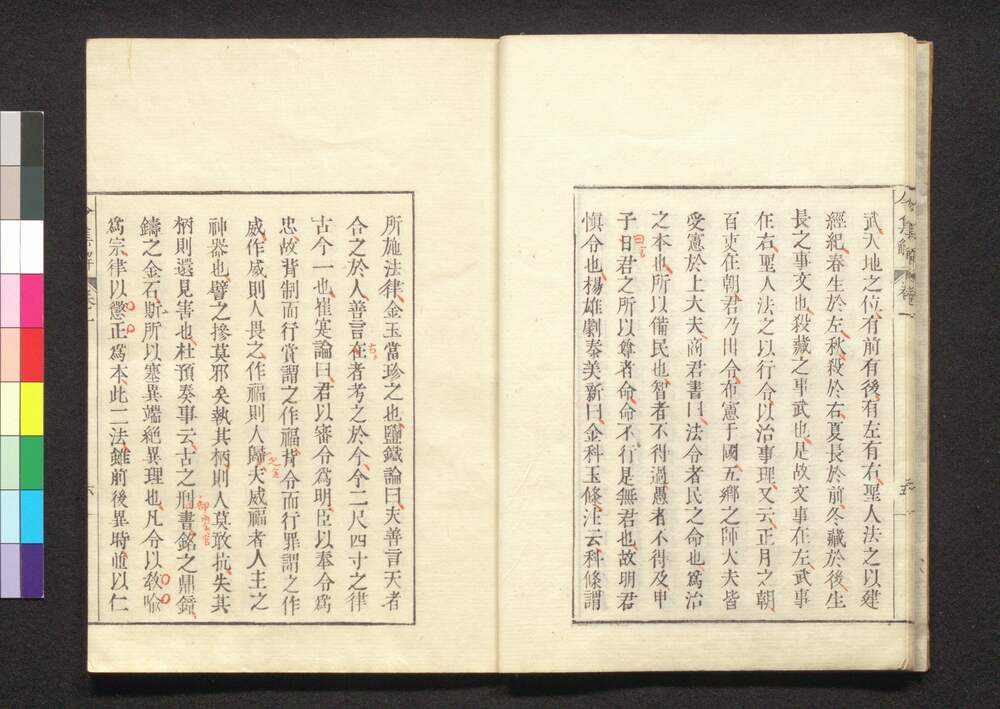 令集解 卷一
武天地之位有前有後有左有右聖人法之以建
經紀春生於左秋殺於右夏長於前冬藏於後生
長之事文也殺藏之事武也是故文事在左武事
在右聖人法之以行令以治事理又云正月之朝
百吏在朝君乃出令布憲于國五鄉之師大夫皆
受憲於上大夫商君書曰法令者民之命也爲治
之本也所以備民也智者不得過愚者不得及甲
子曰君之所以尊者命命不行是無君也故明君
愼令也楊雄劇秦美新曰金科玉條注云科條謂
所施法律金玉當珍之也鹽鐵論曰夫善言天者
合之於人善言古者考之於今今二尺四寸之律
古今一也崔寔論曰君以審令爲明臣以奉令爲
忠故背制而行賞謂之作福背令而行罪謂之作
威作威則人畏之作福則人歸夫威福者人主之
神器也譬之摻莫邪矣執其柄則人莫敢抗失其
柄則還見害也杜預奏事云古之刑書銘之鼎鐘
鑄之金石斯所以塞異端絕異理也凡令以敎喩
爲宗律以懲正爲本此二法雖前後異時並以仁